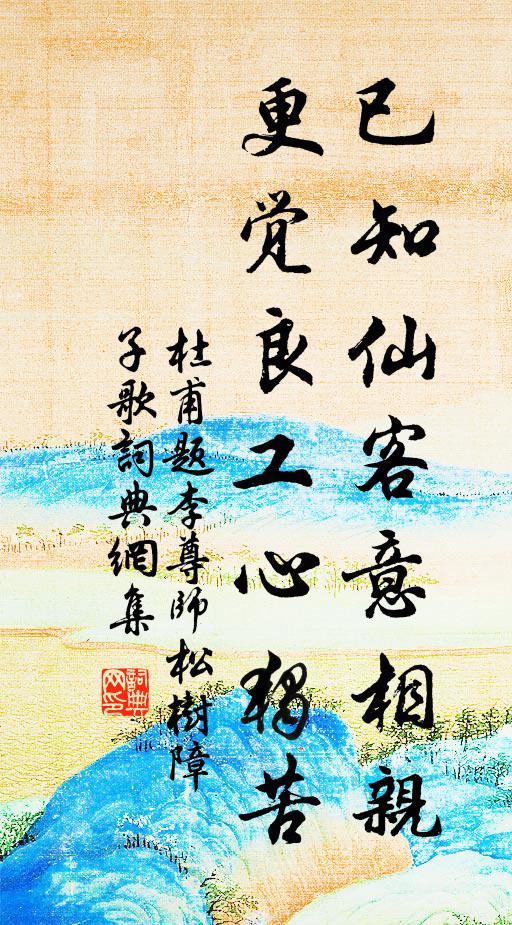 已知仙客意相親
更觉良工心獨苦
杜甫題李尊師松樹障
子歌詞典網集
詞典
网印